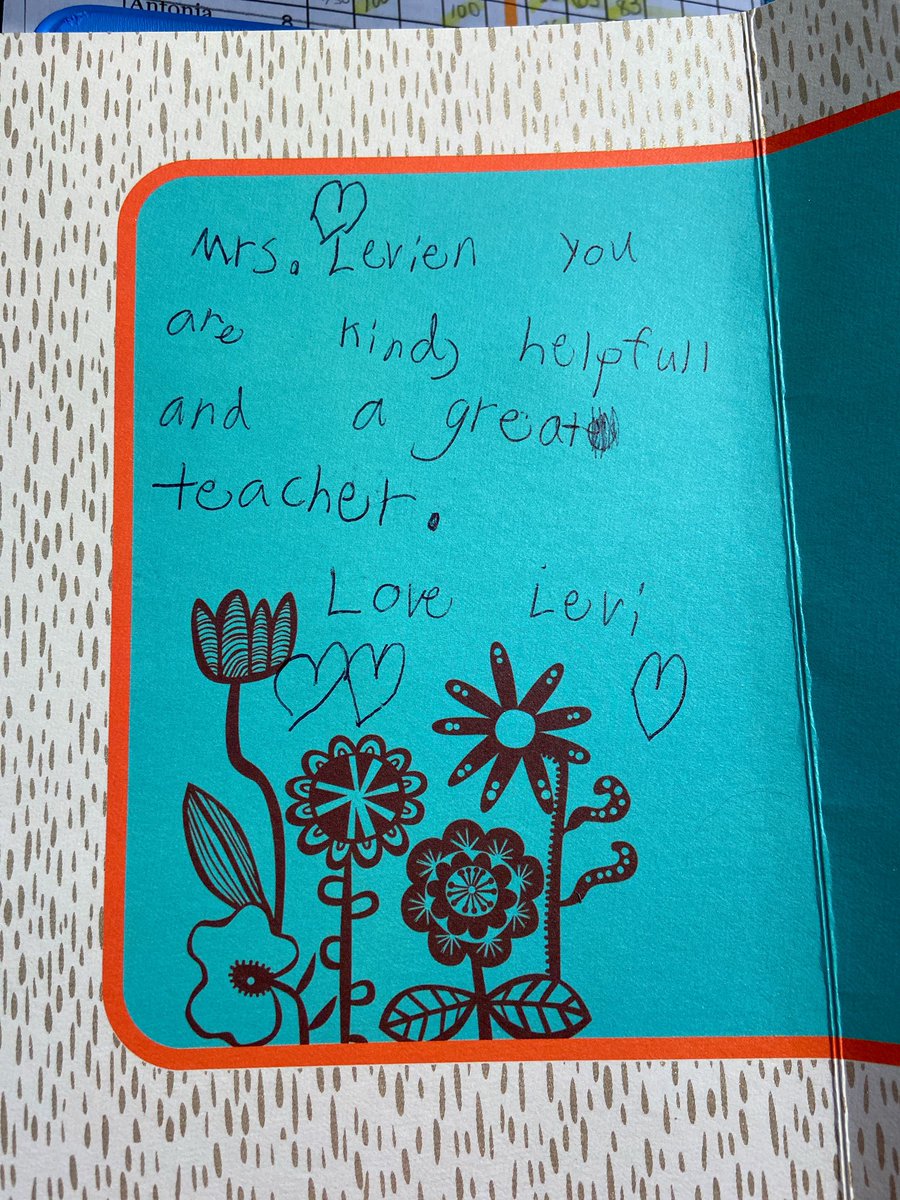 Antonia 8 100 100 83
Mrs. Levien you
are kind, helpfull
and a great
teacher.
Love Levi